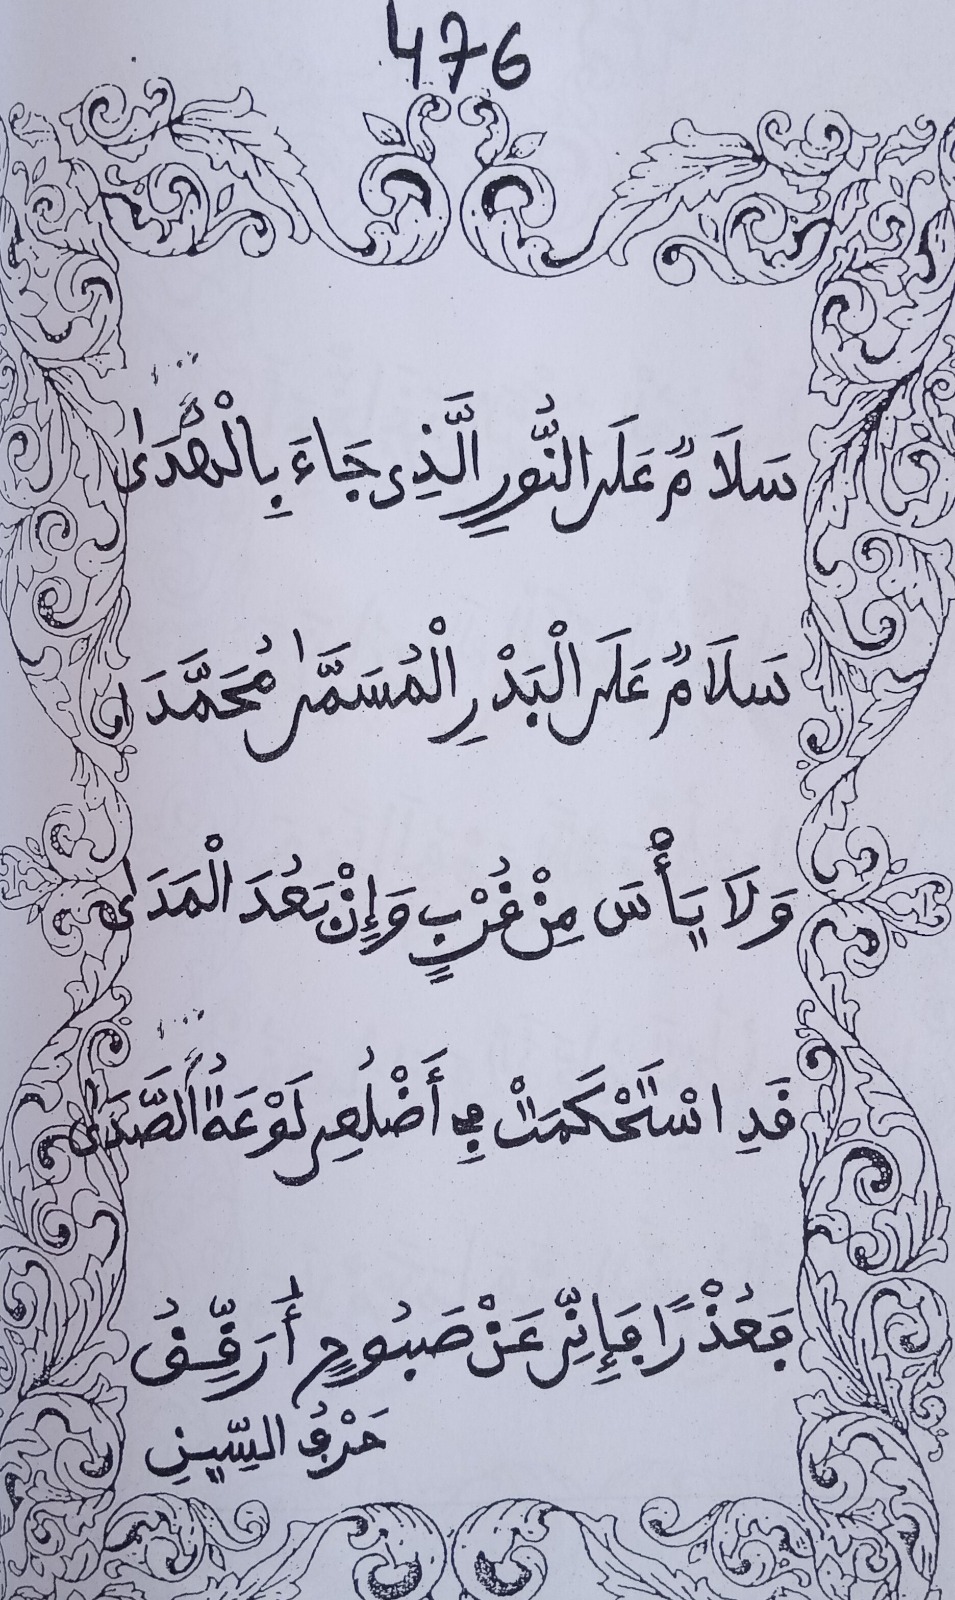 476
سَلَامٌ عَلَى النُّورِ الَّذِي جَاءَ بِالْهُدَى
سَلَامٌ عَلَى الْبَدْرِ الْمُسَمَّى مُحَمَّدَا
وَلَا يَأْسَ مِنْ قُرْبٍ وَإِنْ بَعُدَ الْمَدَى
قَدِ اسْتَحْكَمَتْ فِي أَضْلُعِي لَوْعَةُ الصَّدَى
فَعُذْرًا فَإِنِّي عَنْ صَبُوحٍ أُرَقِّقُ
حَرْفُ السِّينِ